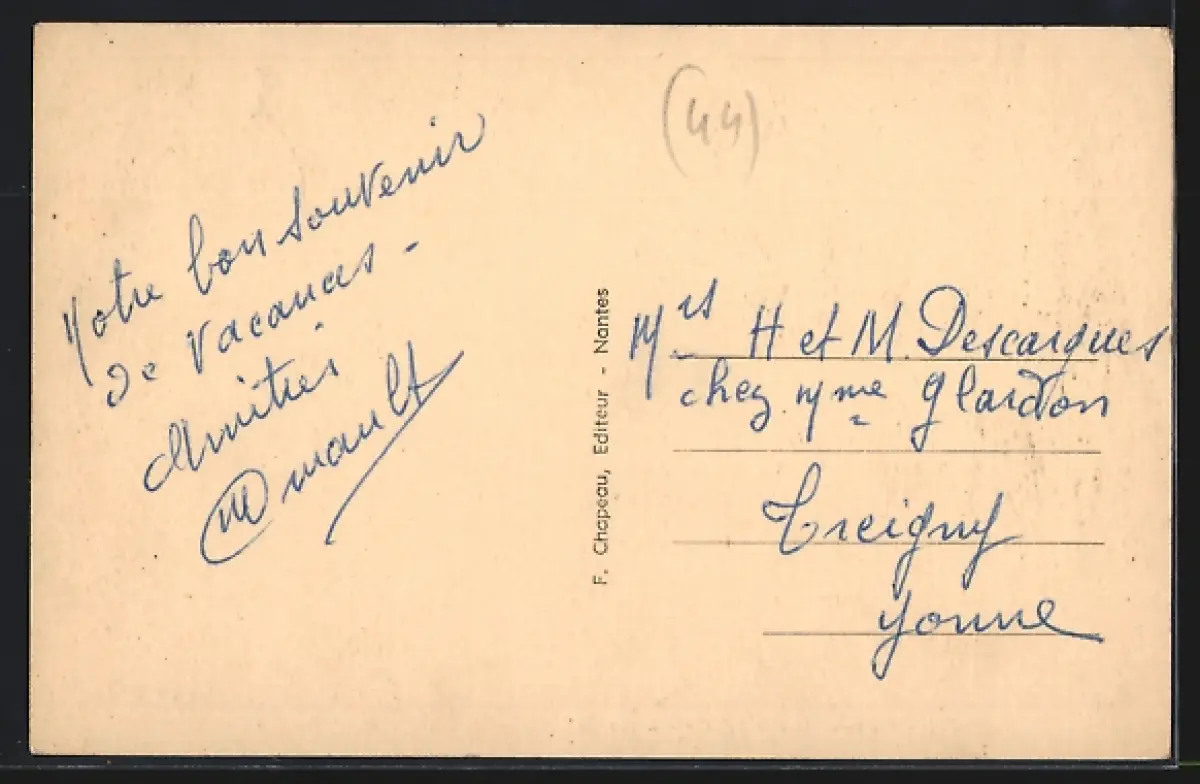 Notre bon souvenir
de vacances -
Amitiés
(44)
F. Chapeau, Editeur - Nantes
Mrs H et M. Descargues
chez Mme Glardon
Treigny
Yonne